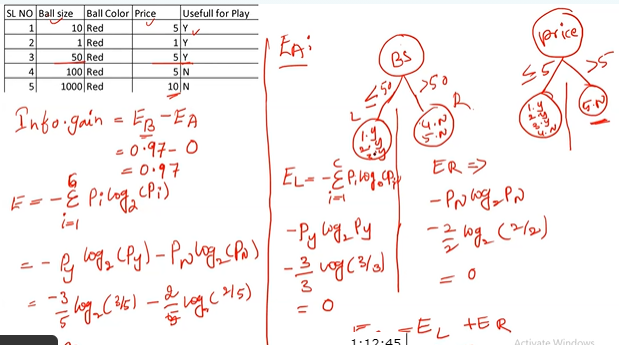 SL NO Ball size Ball Color Price Usefull for Play
1 10 Red 5 Y
2 1 Red 1 Y
3 50 Red 5 Y
4 100 Red 5 N
5 1000 Red 10 N
Info.gain = E_B - E_A
= 0.97 - 0
= 0.97
E = - Σ Pi log2 (Pi)
i=1
= - Py log2 (Py) - PN log2 (PN)
= -3/5 log2 (3/5) - 2/5 log2 (2/5)
EA:
BS
≤50 >50
L R
1.Y
2.Y
3.Y
4.N
5.N
EL = - Σ Pi log2 (Pi)
i=1
- Py log2 Py
- 3/3 log (3/3)
= 0
price
≤5 >5
1.Y
2.Y
3.Y
4.N
5.N
ER =>
- PN log2 PN
- 2/2 log2 (2/2)
= 0
= EL + ER
1:12:45
Activate Windows